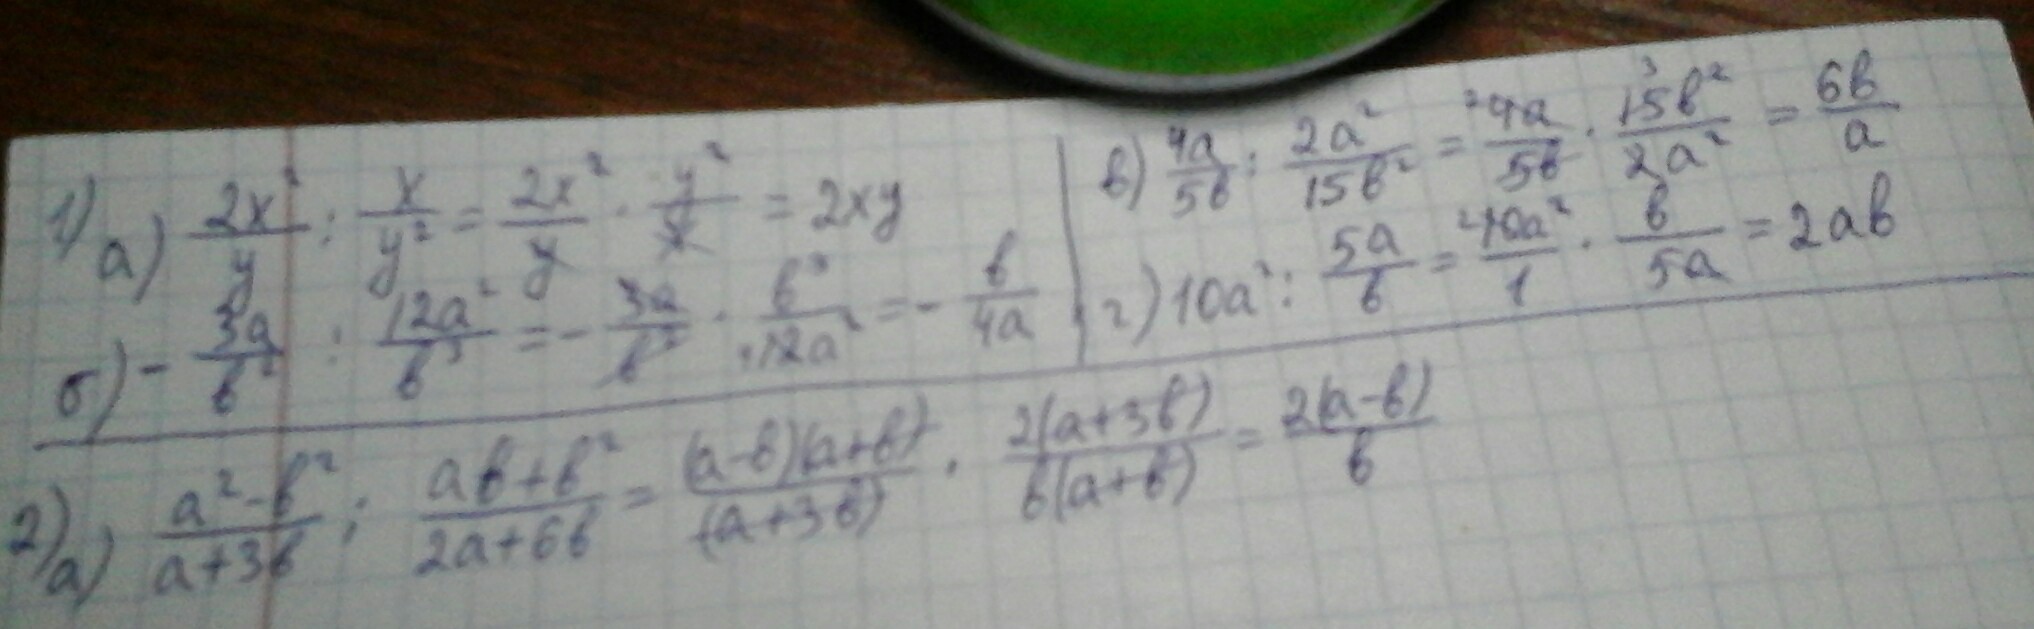 1) а) 2x²/y : x/y² = 2x²/y · y²/x = 2xy
б) - 3a/b² : 12a²/b³ = - 3a/b² · b³/12a² = - b/4a
в) 4a/5b : 2a²/15b² = ²4a/5b · ³15b²/2a² = 6b/a
г) 10a² : 5a/b = ²10a²/1 · b/5a = 2ab
2) а) a²-b²/a+3b : ab+b²/2a+6b = (a-b)(a+b)/(a+3b) · 2(a+3b)/b(a+b) = 2(a-b)/b